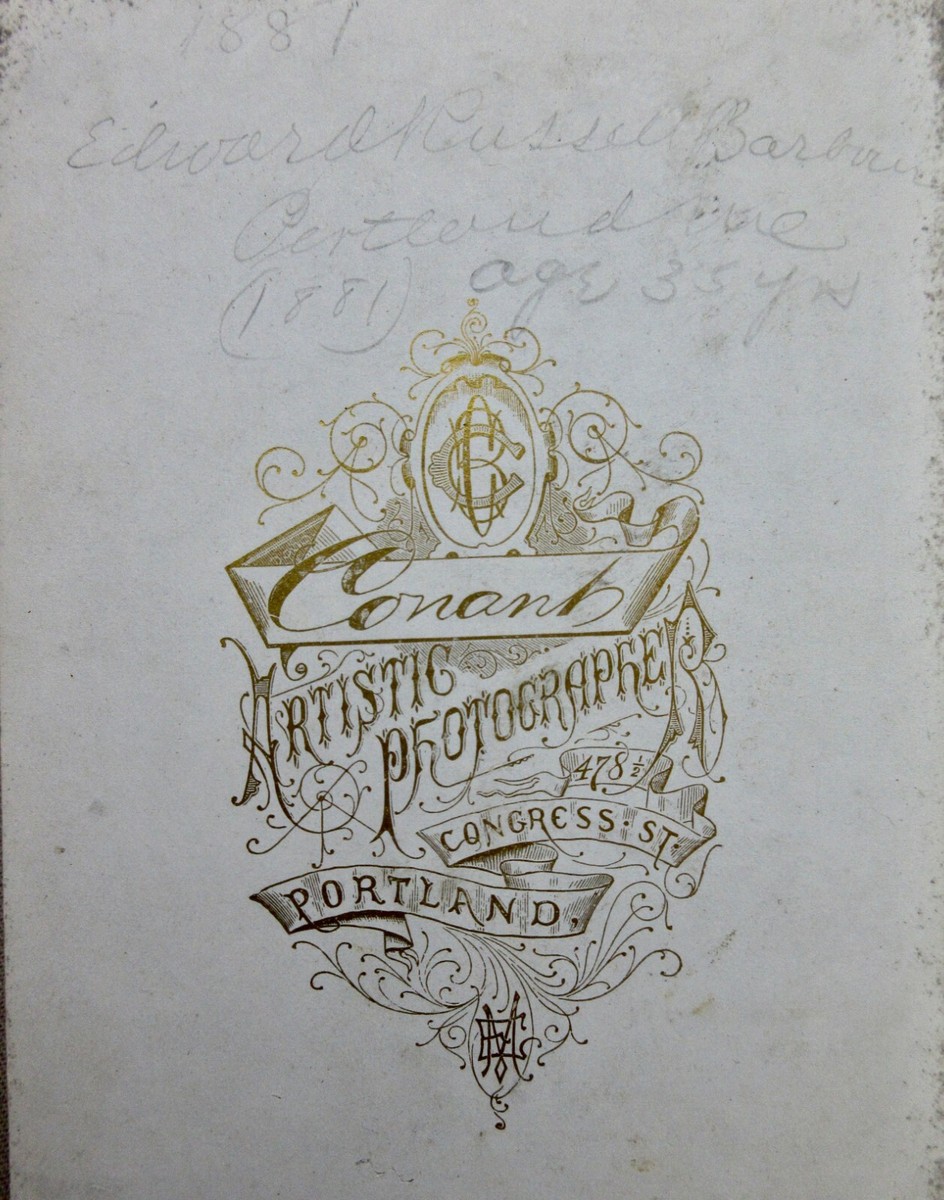 1881
Edward Russell Barbour
Portland Me
(1881) age 35 yrs
Conant
ARTISTIC
PHOTOGRAPHER
478 ½
CONGRESS · ST.
PORTLAND,
ME